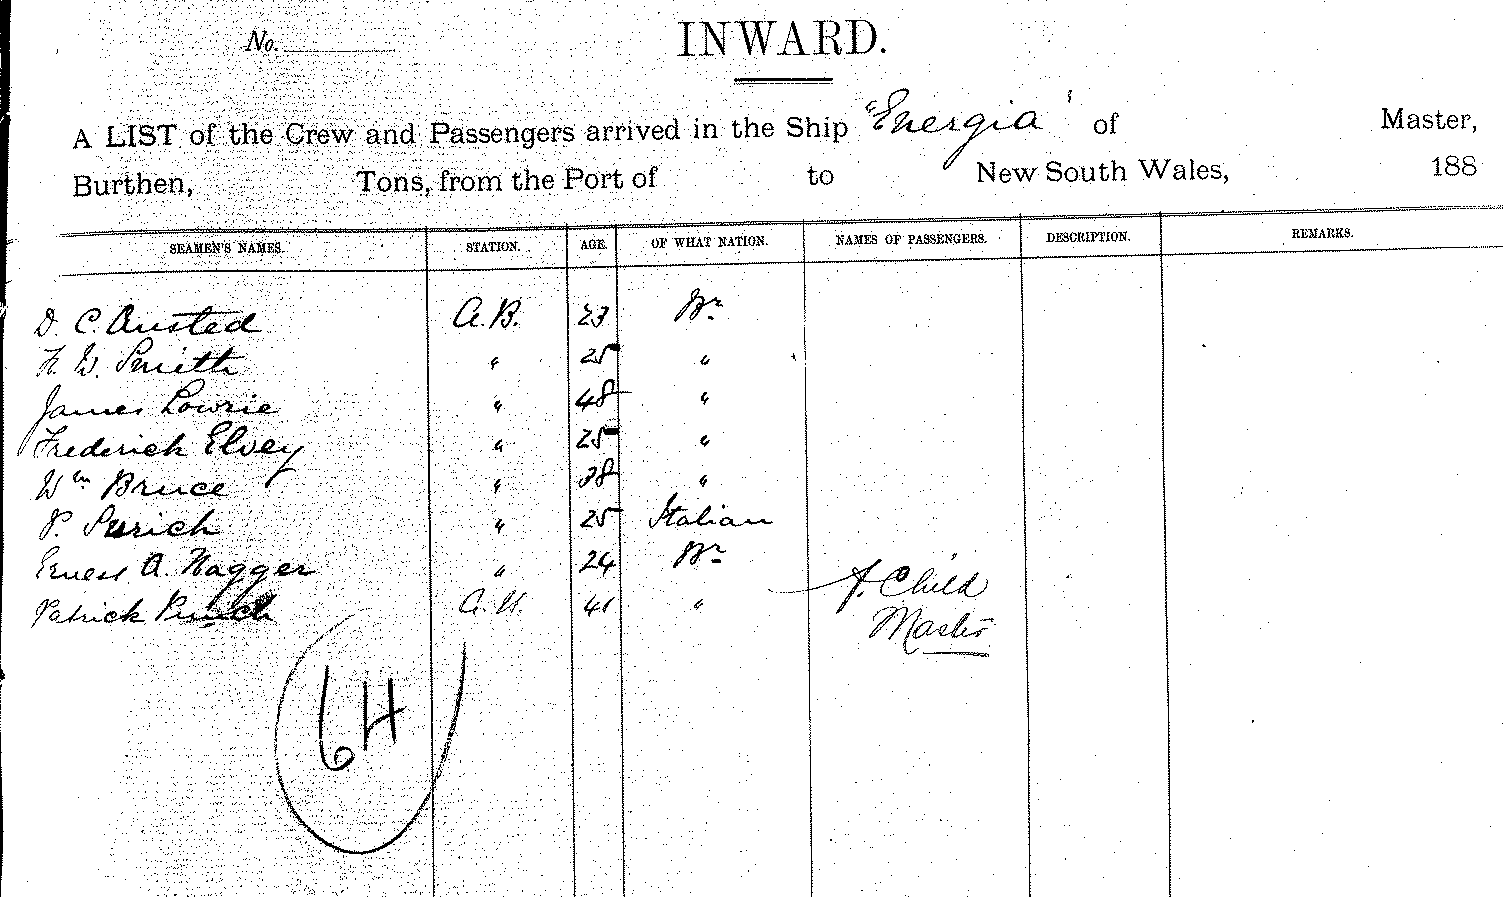 No.
INWARD.
A LIST of the Crew and Passengers arrived in the Ship "Energia" of Master,
Burthen, Tons, from the Port of to New South Wales, 188
SEAMEN'S NAMES. STATION. AGE. OF WHAT NATION. NAMES OF PASSENGERS. DESCRIPTION. REMARKS.
D. C. Austed A.B. 23 Br
W. Smith " 25 " 
James Lowrie " 48 "
Frederick Elvey " 25 "
Wm Bruce " 38 "
P. Surich " 25 Italian
Ernest A. Nagger " 24 Br
Patrick Punch 41 " J. Child
Master
64